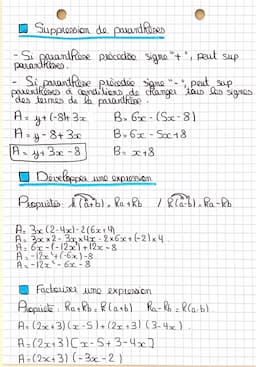 Suppression de paranthèses
- Si paranthèse précédée signe "+", peut sup
paranthèses.
- Si paranthèse précédée signe "-", peut sup
paranthèses à conditions de changer tous les signes
des termes de la paranthèse.
A = y + (-8 + 3x B = 6x - (5x - 8)
A = y - 8 + 3x B = 6x - 5x + 8
A = y + 3x - 8 B = x + 8
Développer une expression
Propriétés : k(a+b) = ka + kb / k(a-b) = ka - kb
A = 3x(2-4x) - 2(6x+4)
A = 3x × 2 - 3x × 4x - 2 × 6x + (-2) × 4
A = 6x - (-12x²) + 12x - 8
A = -12x² + (-6x) - 8
A = -12x² - 6x - 8
Factoriser une expression
Propriété : ka + kb = k(a+b) ka - kb = k(a-b)
A = (2x+3)(x-5) + (2x+3)(3-4x)
A = (2x+3)[x - 5 + 3 - 4x]
A = (2x+3)(-3x-2)